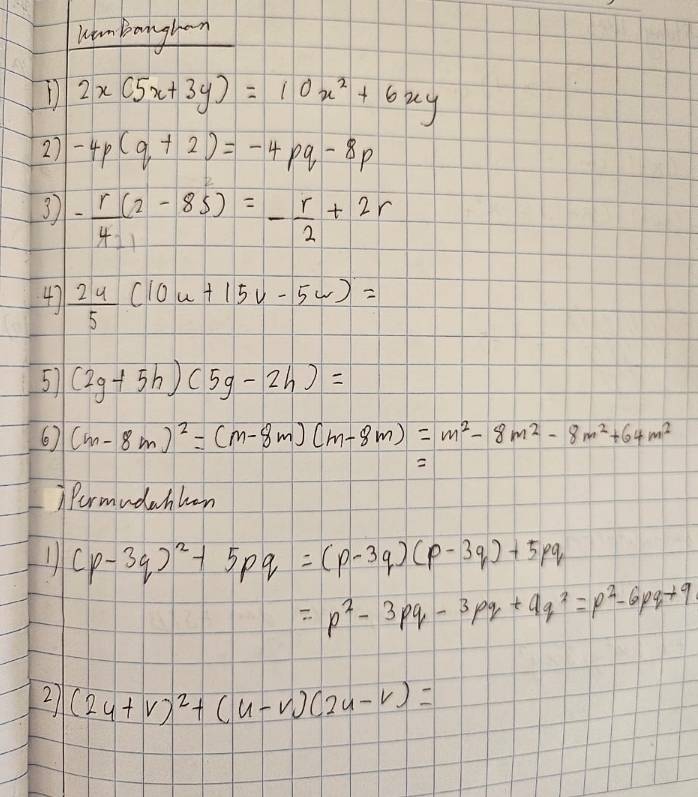 Kembangkan
1) 2x(5x+3y) = 10x² + 6xy
2) -4p(q+2) = -4pq - 8p
3) -r/4 (2 - 8s) = -r/2 + 2r
4) 2u/5 (10u + 15v - 5w) =
5) (2g+5h)(5g-2h) =
6) (m-8m)² = (m-8m)(m-8m) = m² - 8m² - 8m² + 64m²
=
Permudahkan
1) (p-3q)² + 5pq = (p-3q)(p-3q) + 5pq
= p² - 3pq - 3pq + 9q² = p² - 6pq + 9
2) (2u+v)² + (u-v)(2u-v) =